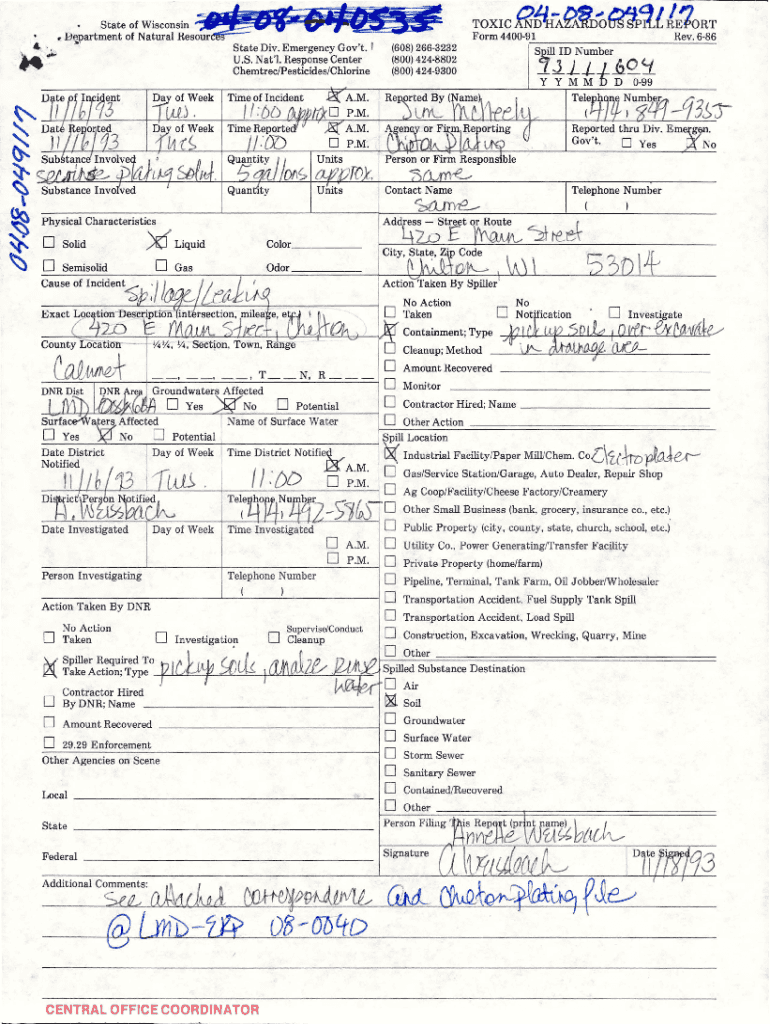 04-08-040535
04-08-049117
State of Wisconsin
Department of Natural Resources
TOXIC AND HAZARDOUS SPILL REPORT
Form 4400-91 Rev. 6-86
State Div. Emergency Gov't. (608) 266-3232
U.S. Nat'l. Response Center (800) 424-8802
Chemtrec/Pesticides/Chlorine (800) 424-9300
Spill ID Number
93111604
Y Y M M D D 0-99
04-08-049117
0408-0040
Date of Incident Day of Week Time of Incident A.M. Reported By (Name) Telephone Number
11/16/93 Tues. 11:00 approx P.M. Jim McNeely (414) 849-9355
Date Reported Day of Week Time Reported A.M. Agency or Firm Reporting Reported thru Div. Emergen.
11/16/93 Tues 11:00 P.M. Chilton Plating Gov't. Yes No
Substance Involved Quantity Units Person or Firm Responsible
plating solut. 5 gallons approx. Same
Substance Involved Quantity Units Contact Name Telephone Number
Same ( )
Physical Characteristics
Solid Liquid Color
Semisolid Gas Odor
Address — Street or Route
420 E Main Street
City, State, Zip Code
Chilton, WI 53014
Cause of Incident
Spillage/Leaking
Exact Location Description (intersection, mileage, etc.)
420 E Main Street, Chilton
County Location ¼¼, ¼, Section, Town, Range
Calumet , , , T N, R
DNR Dist DNR Area Groundwaters Affected
LMD Yes No Potential
Surface Waters Affected Name of Surface Water
Yes No Potential
Date District Notified Day of Week Time District Notified
11/16/93 Tues. 11:00 A.M.
P.M.
District Person Notified Telephone Number
A. Weissbach (414) 492-5865
Date Investigated Day of Week Time Investigated
A.M.
P.M.
Person Investigating Telephone Number
( )
Action Taken By DNR
No Action Taken Investigation Supervise/Conduct Cleanup
Spiller Required To Take Action; Type pick up soils, analze rinse
water
Contractor Hired By DNR; Name
Amount Recovered
29.29 Enforcement
Other Agencies on Scene
Local
State
Federal
Action Taken By Spiller
No Action Taken No Notification Investigate
Containment; Type pick up soil, over excavate
Cleanup; Method in drainage area
Amount Recovered
Monitor
Contractor Hired; Name
Other Action
Spill Location
Industrial Facility/Paper Mill/Chem. Co. Electroplater
Gas/Service Station/Garage, Auto Dealer, Repair Shop
Ag Coop/Facility/Cheese Factory/Creamery
Other Small Business (bank, grocery, insurance co., etc.)
Public Property (city, county, state, church, school, etc.)
Utility Co., Power Generating/Transfer Facility
Private Property (home/farm)
Pipeline, Terminal, Tank Farm, Oil Jobber/Wholesaler
Transportation Accident, Fuel Supply Tank Spill
Transportation Accident, Load Spill
Construction, Excavation, Wrecking, Quarry, Mine
Other
Spilled Substance Destination
Air
Soil
Groundwater
Surface Water
Storm Sewer
Sanitary Sewer
Contained/Recovered
Other
Person Filing This Report (print name)
Annette Weissbach
Signature Date Signed
A Weissbach 11/18/93
Additional Comments:
See attached correspondence and Chilton Plating file
@ LMD-ERP 08-0040
CENTRAL OFFICE COORDINATOR